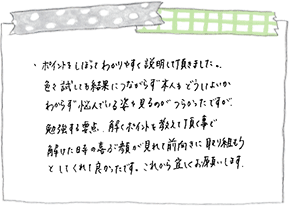 ・ポイントをしぼってわかりやすく説明して頂きました。
色々試しても結果につながらず本人もどうしてよいか
わからず悩んでいる姿を見るのがつらかったですが、
勉強する要点、解くポイントを教えて頂く事で
解けた日等の喜ぶ顔が見れて前向きに取り組もう
としてくれて良かったです。これから宜しくお願いします。